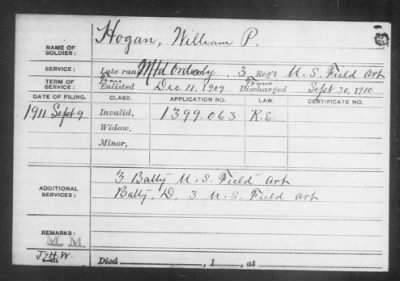 Hogan, William P.
NAME OF SOLDIER:
SERVICE: Late rank Mtd Orderly 3 Reg't U.S. Field Art
TERM OF SERVICE: Enlisted Dec 11, 1907 Discharged Sept 30, 1910
DATE OF FILING. CLASS. APPLICATION NO. LAW. CERTIFICATE NO.
1911 Sept 9 Invalid, 1399.063 R.E.
Widow,
Minor,
ADDITIONAL SERVICES:
3 Batty U.S. Field Art
Batty, D. 3 U.S. Field Art
REMARKS:
M. M.
J.H.W. Died , 1 , at